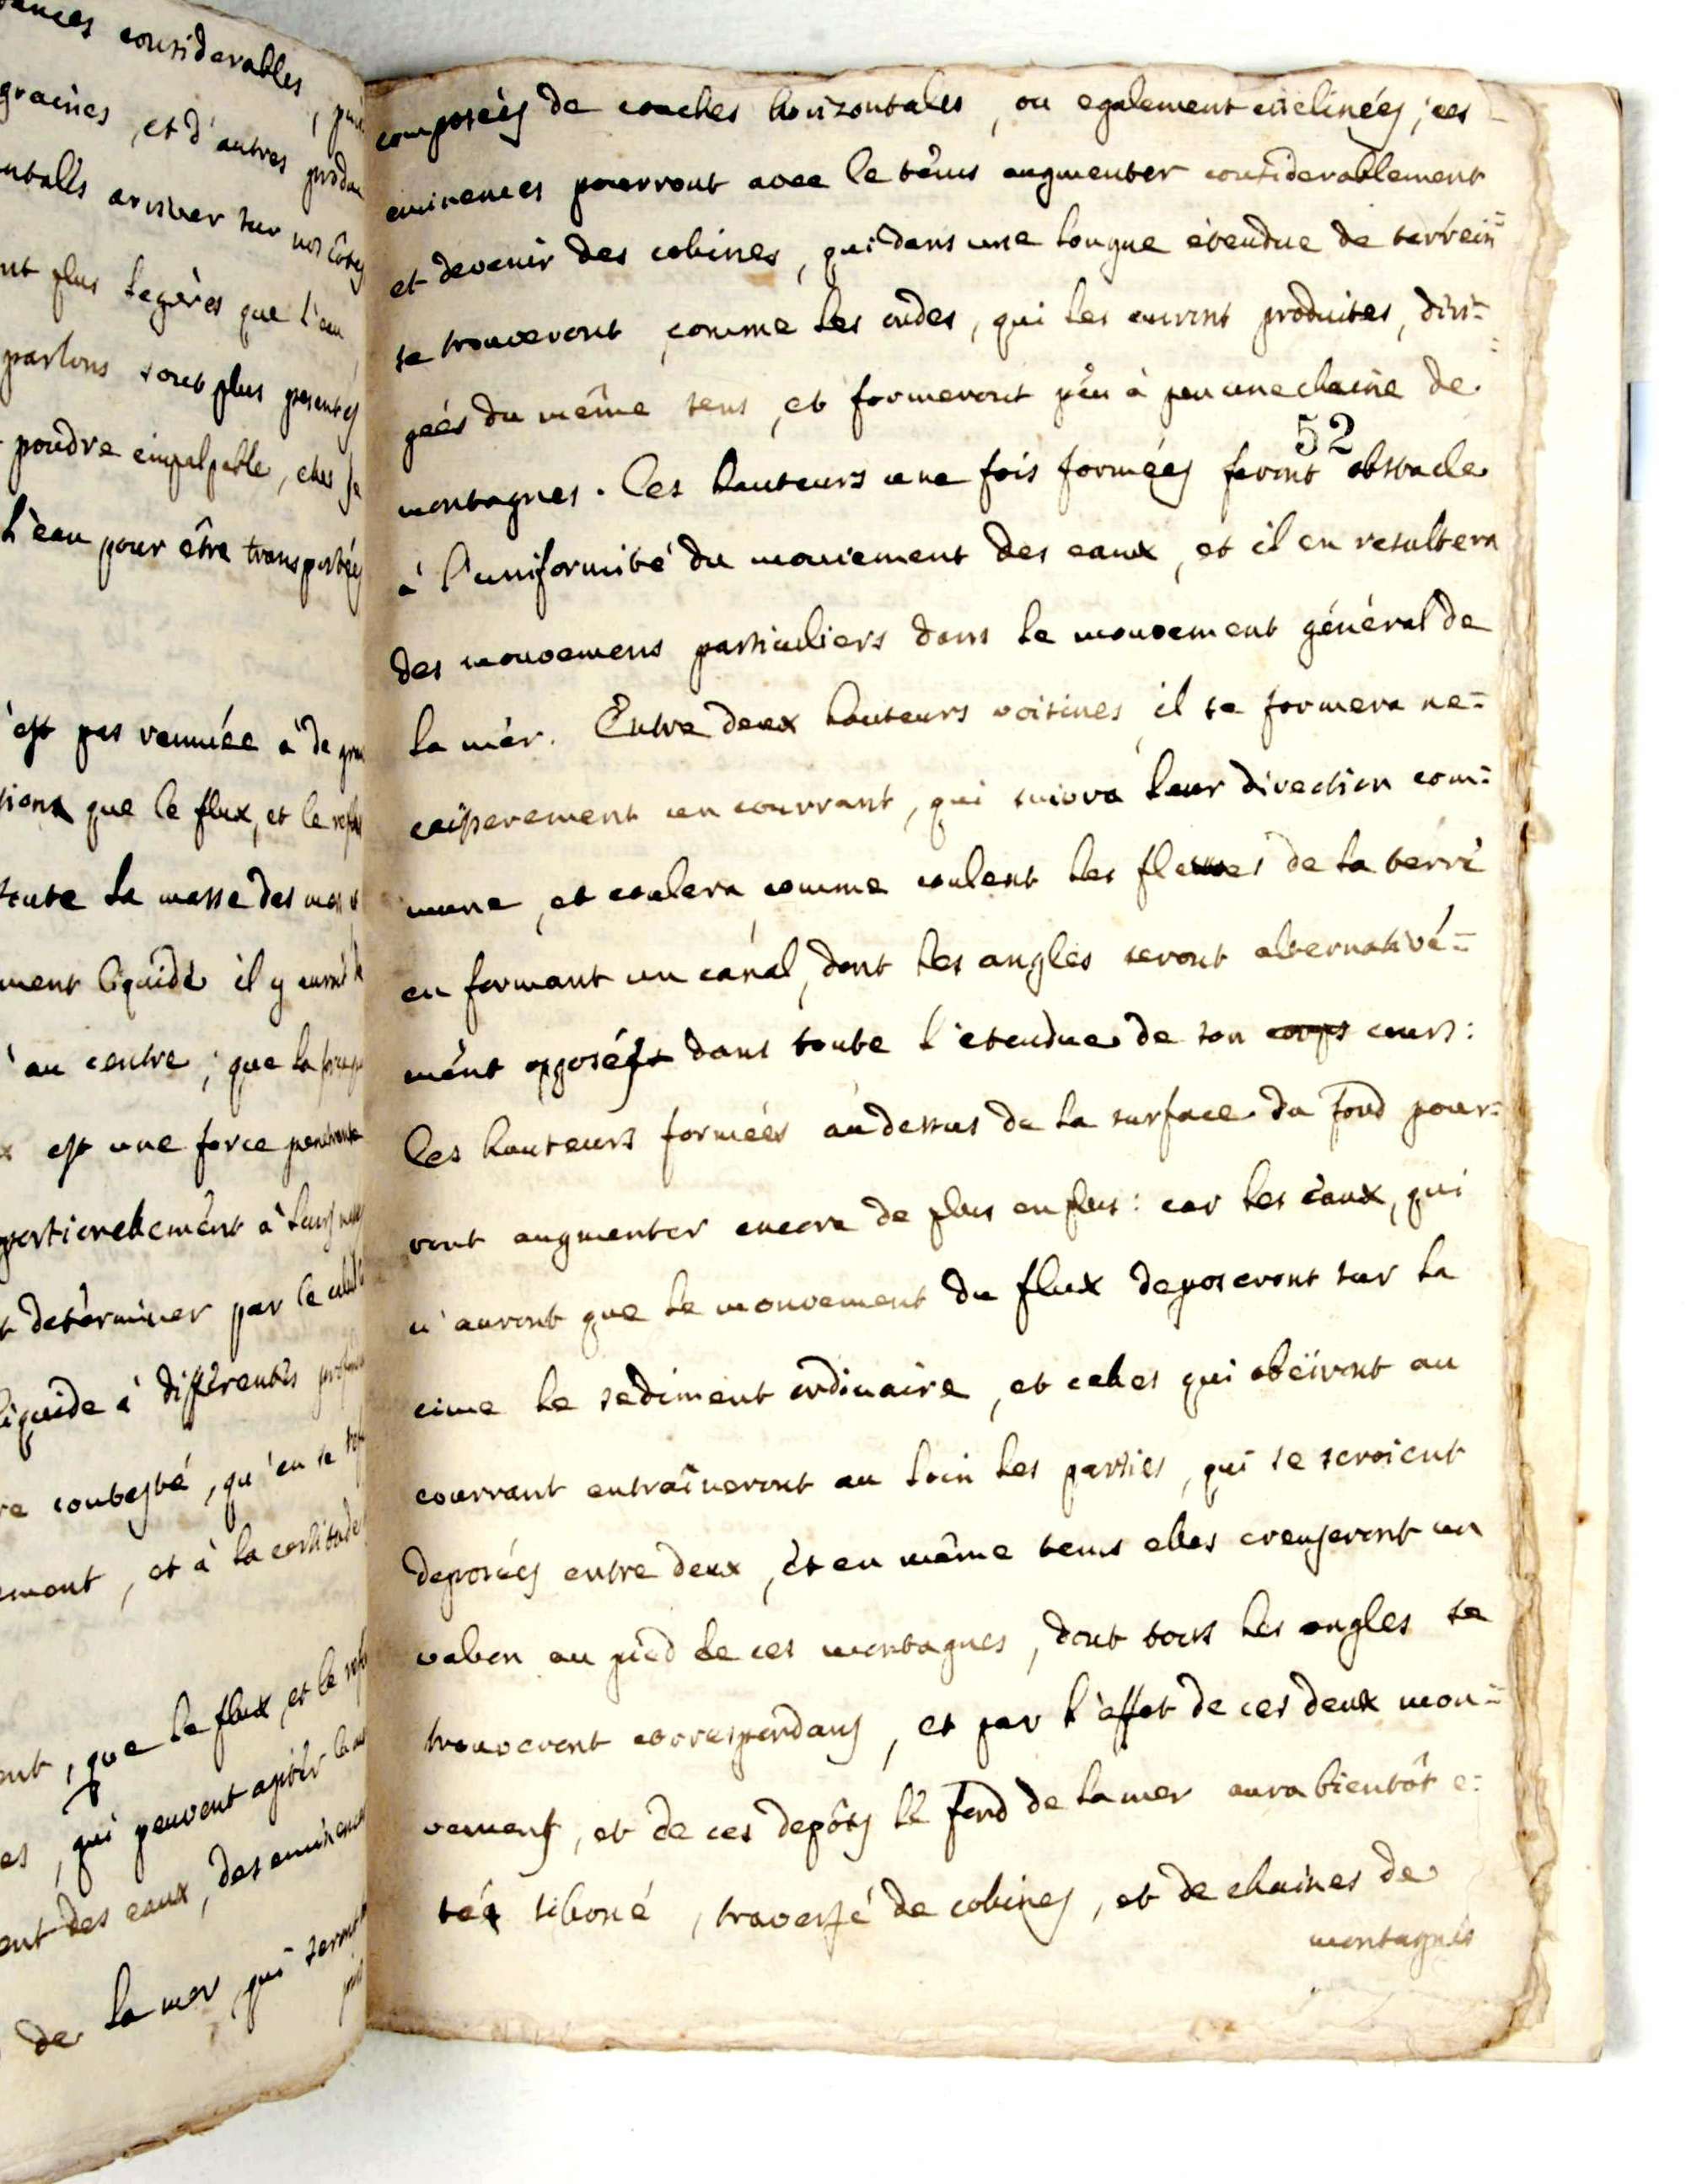 ances considerables,
graines, et d'autres produ
arriver sur nos côtes
nt plus legères que l'eau
parlons sont plus pesantes
poudre impalpable, elles se
l'eau pour être transportées
'est pas remuée à de gran
tions que le flux, et le reflux
toute la masse des mers
ment liquide il y auroit
au centre; que la
est une force penetrante
portionellement à leurs
t determiner par le calcul
liquide à differentes profon
re contesté, qu'en se
ement, et à la certitude
ent, que le flux, et le refl
es, qui peuvent agiter
ent des eaux, des eminences
de la mer, qui seront
composées de couches horizontales, ou egalement inclinées; ces
eminences pourront avec le téms augmenter considerablement
et devenir des colines, qui dans une longue étendue de terrein
se trouveront, comme les ondes, qui les auront produites, diri=
geés du même sens, et formeront peu à peu une chaine de
52
montagnes. Ces hauteurs une fois formées feront obstacle
à l'uniformité du mouvement des eaux, et il en resultera
des mouvemens particuliers dans le mouvement général de
la mèr. Entre deux hauteurs voisines, il se formera ne=
caissairement un courrant, qui suivra leur direction com=
mune, et coulera, comme coulent les fleuves de la terre
en formant un canal, dont les angles seront alternativé=
mént opposés dans toute l'etendue de son corps cours:
les hauteurs formées au dessus de la surface du fond pour=
ront augmenter encore de plus en plus: car les eaux, qui
n'auront que le mouvement du flux deposeront sur la
cime le sediment ordinaire, et celles qui obeïront au
courrant entraîneront au loin les parties, qui se seroient
deposées entre deux, et en même tems elles creuseront un
valon au pied de ces montagnes, dont tous les angles se
trouveront correspondans, et par l'effet de ces deux mou=
vemens, et de ces depôts le fond de la mer aura bientôt e=
té silloné, traversé de colines, et de chaines de
montagnes